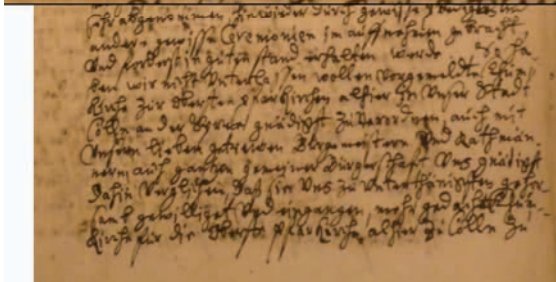 sehr abgenommen, hinwieder durch gewisse
andere gewisse Ceremonien im auffnehmen gebracht
Und forters in guten stand erhalten werde
ben wir nicht Unterlassen wollen vorgemeldte
Kirche zur Obersten pfarkirchen alhier in Unser Stadt
Cölln an der Sprew gnädigst zu verordnen, auch mit
Unsern lieben getrewen Bürgermeistern Und Rathmän-
nern auch gantzen gemeiner Bürgerschafft Uns gnädigst
dahin Verglichen, daß sie Uns zu Unterthänigsten gehor-
samb gewilliget Und eingangen,
Kirche für die Oberste pfarkirche alhier zu Cölln zu